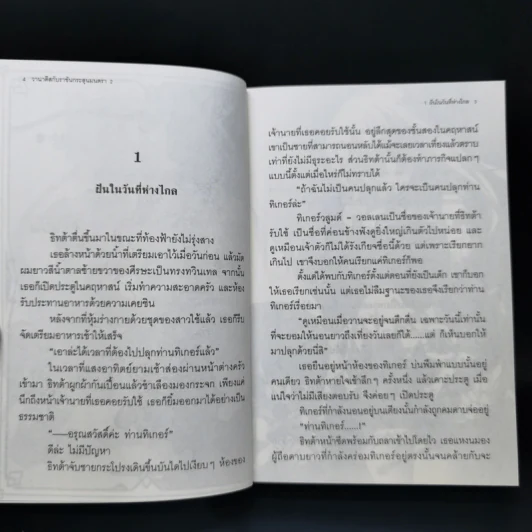 4 วานาดีสกับราชันกระสุนมนตรา 2
1
ฝันในวันที่ห่างไกล
ธิทต้าตื่นขึ้นมาในขณะที่ท้องฟ้ายังไม่รุ่งสาง
เธอล้างหน้าด้วยน้ำที่เตรียมเอาไว้เมื่อวันก่อน แล้วมัด
ผมยาวสีน้ำตาลซ้ายขวาของศีรษะเป็นทรงทวินเทล จากนั้น
เธอก็เปิดประตูในคฤหาสน์ เริ่มทำความสะอาดครัว และห้อง
รับประทานอาหารด้วยความเคยชิน
หลังจากที่หุ้มร่างกายด้วยชุดของสาวใช้แล้ว เธอก็รีบ
จัดเตรียมอาหารเช้าให้เสร็จ
"เอาล่ะได้เวลาที่ต้องไปปลุกท่านทิเกอร์แล้ว"
ในเวลาที่แสงอาทิตย์ยามเช้าส่องผ่านหน้าต่างครัว
เข้ามา ธิทต้าผูกผ้ากันเปื้อนแล้วชำเลืองมองกระจก เพียงแค่
นึกถึงหน้าเจ้านายที่เธอคอยรับใช้ เธอก็ยิ้มออกมาได้อย่างเป็น
ธรรมชาติ
"—อรุณสวัสดิ์ค่ะ ท่านทิเกอร์"
ดีล่ะ ไม่มีปัญหา
ธิทต้าจับชายกระโปรงเดินขึ้นบันไดไปเงียบๆ ห้องของ
1 ฝันในวันที่ห่างไกล 5
เจ้านายที่เธอคอยรับใช้นั้น อยู่ลึกสุดของชั้นสองในคฤหาสน์
เขาเป็นชายที่สามารถนอนหลับได้แม้จะเลยเวลาเที่ยงแล้วตราบ
เท่าที่ยังไม่มีธุระอะไร ส่วนธิทต้านั้นก็ต้องทำภารกิจแปลกๆ
แบบนี้ตั้งแต่เมื่อไหร่ก็ไม่ทราบได้
"ถ้าฉันไม่เป็นคนปลุกแล้ว ใครจะเป็นคนปลุกท่าน
ทิเกอร์ล่ะ"
ทิเกอร์วูลมุด - วอลเลนเป็นชื่อของเจ้านายที่ธิทต้า
รับใช้ เป็นชื่อที่ค่อนข้างฟังดูยิ่งใหญ่เกินตัวไปหน่อย และ
ดูเหมือนเจ้าตัวก็ไม่ได้รังเกียจชื่อนี้ด้วย แต่เพราะเรียกยาก
เกินไป เขาจึงบอกให้คนเรียกแค่ทิเกอร์ก็พอ
ตั้งแต่ได้พบกับทิเกอร์ตั้งแต่ตอนที่ยังเป็นเด็ก เขาก็บอก
ให้เธอเรียกเช่นนั้น แต่เธอไม่ลืมฐานะของเธอจึงเรียกว่าท่าน
ทิเกอร์เรื่อยมา
"ดูเหมือนเมื่อวานจะอยู่จนดึกดื่น เฉพาะวันนี้เท่านั้น
ที่จะยอมให้นอนยาวถึงเที่ยงวันเลยก็ได้......แต่ ก็เห็นบอกให้
มาปลุกด้วยนี่สิ"
เธอยืนอยู่หน้าห้องของทิเกอร์ บ่นพึมพำแบบนั้นอยู่
คนเดียว ธิทต้าหายใจเข้าลึกๆ ครั้งหนึ่ง แล้วเคาะประตู เมื่อ
แน่ใจว่าไม่มีเสียงตอบรับ จึงค่อยๆ เปิดประตู
ทิเกอร์ที่กำลังนอนอยู่บนเตียงนั้นกำลังถูกคมดาบจ่ออยู่
"ท่านทิเกอร์......!"
ธิทต้าหน้าซีดพร้อมกับถลาเข้าไปโดยไว เธอแหงนมอง
ผู้ถือดาบยาวที่กำลังคร่อมทิเกอร์อยู่ตรงนั้นจนคล้ายกับจะ